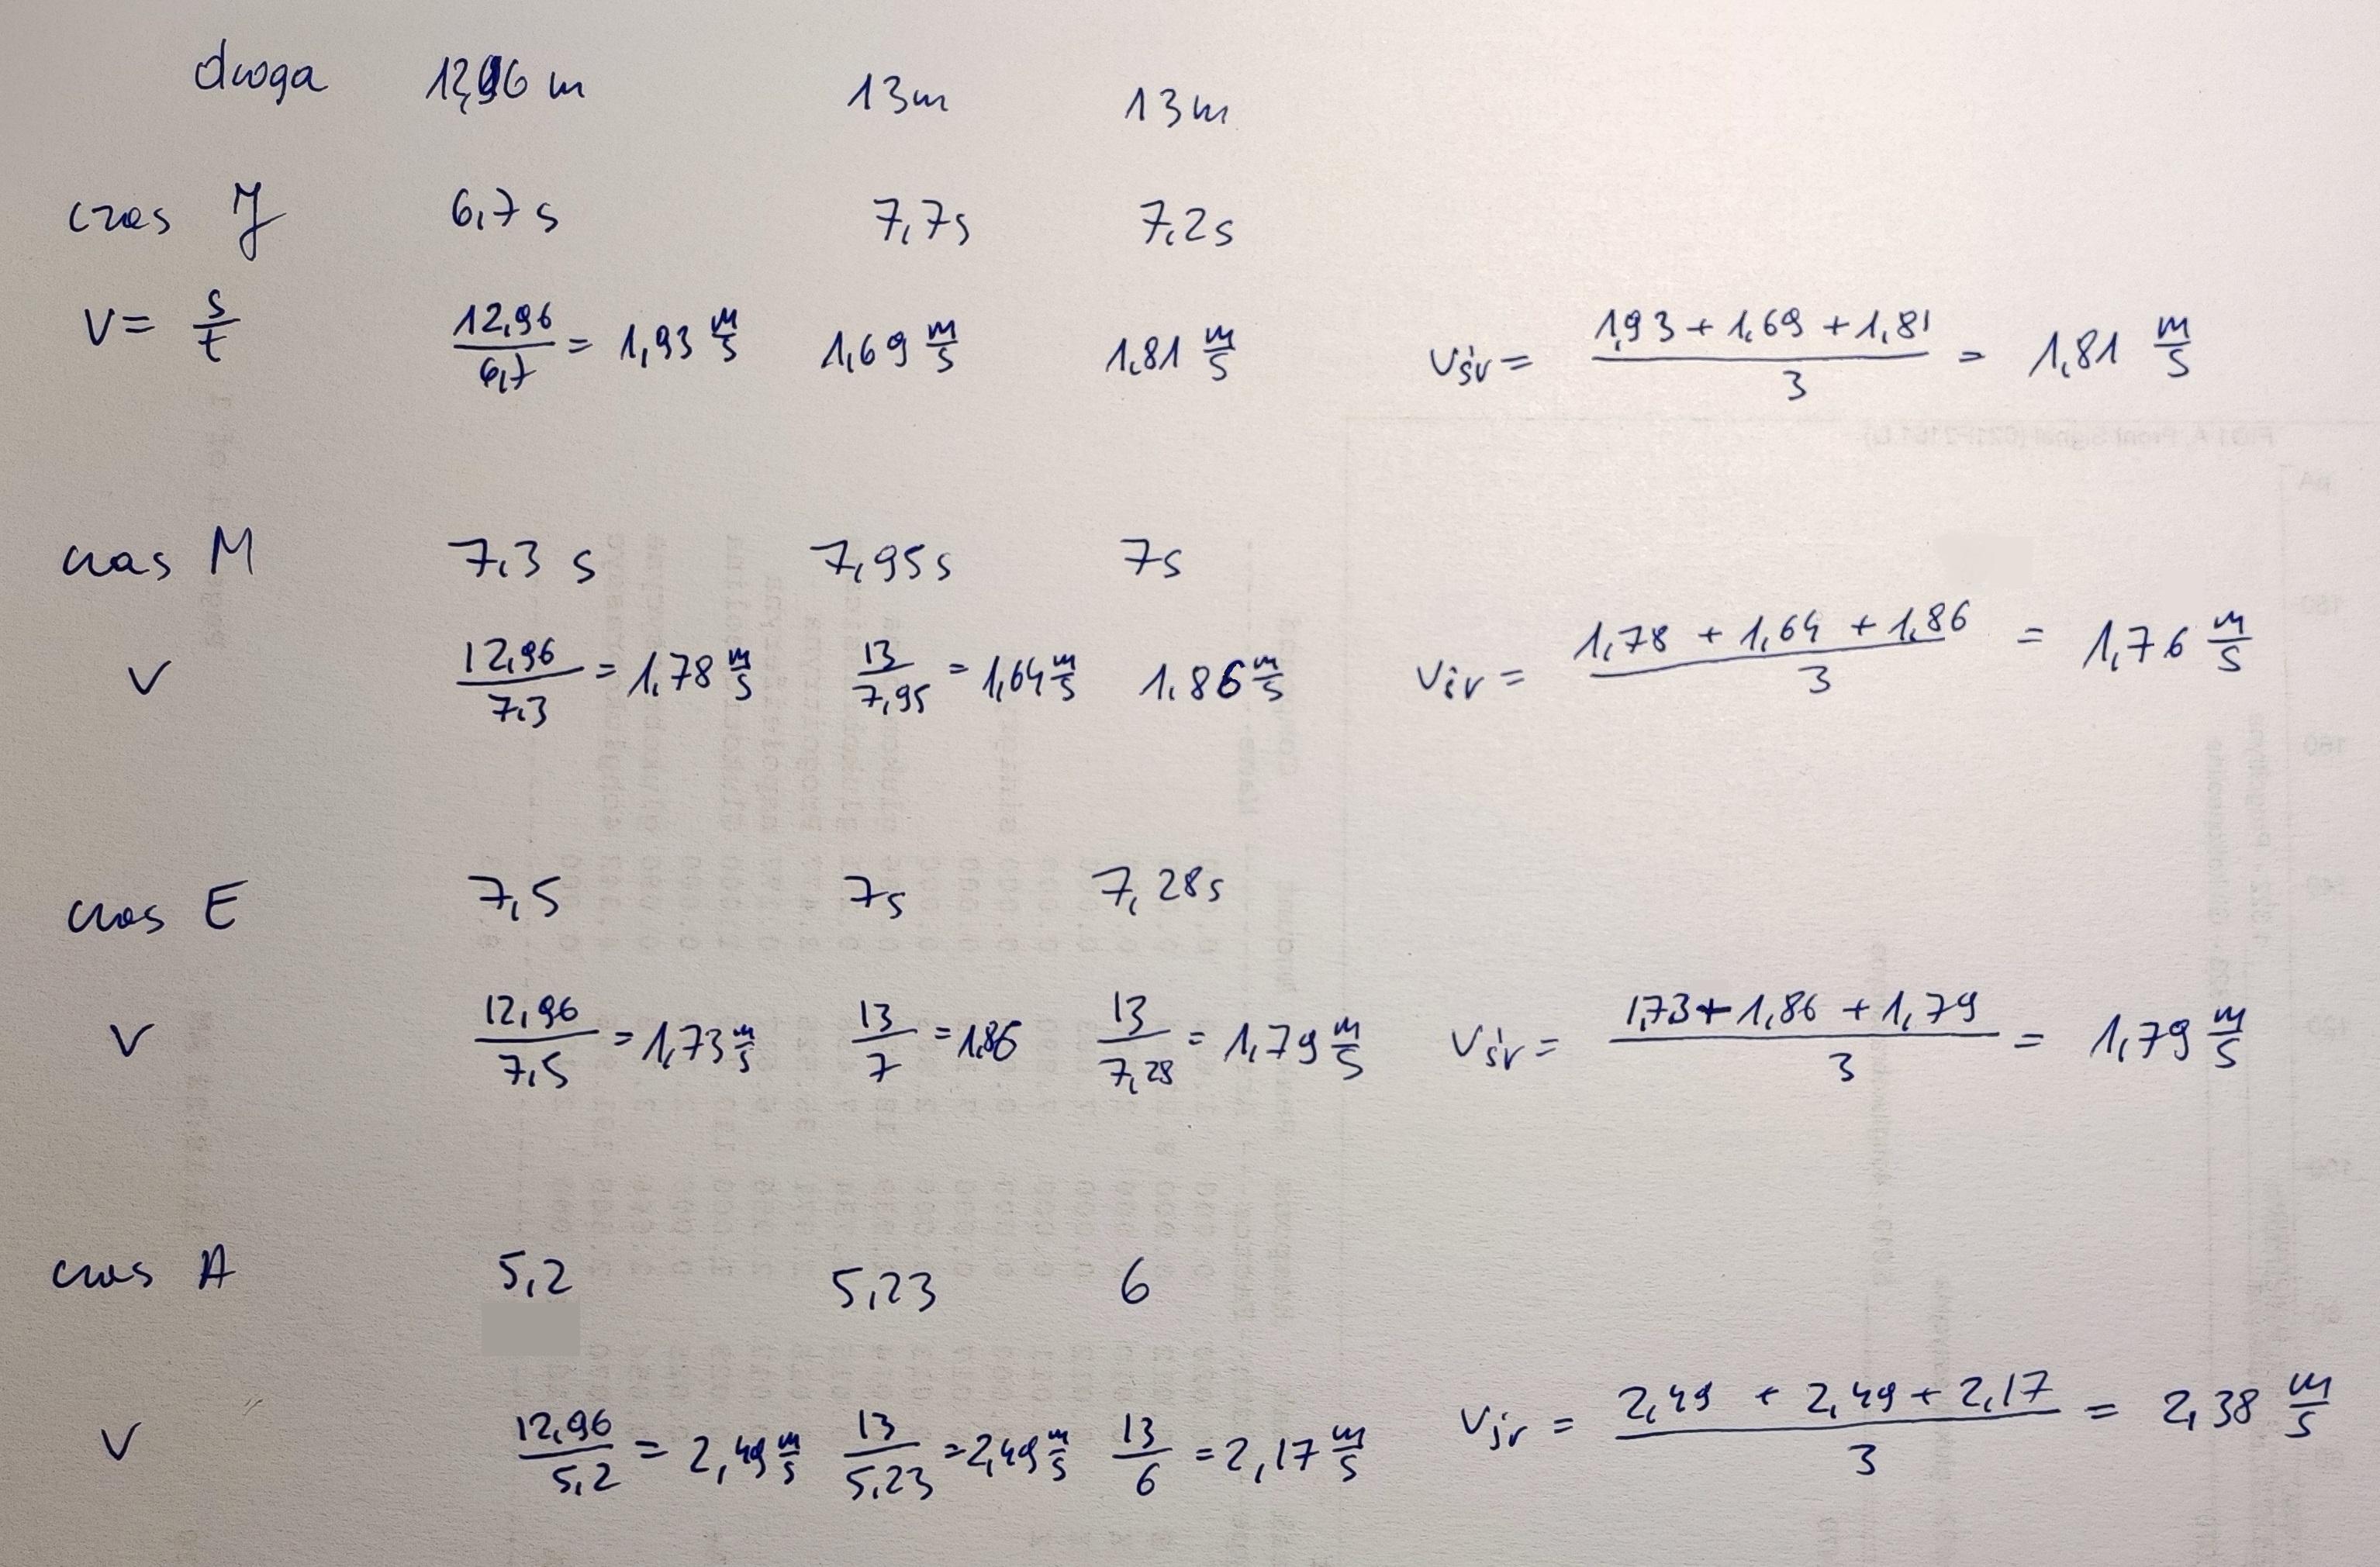 droga 12,96 m 13m 13m
czas J 6,7s 7,7s 7,2s
V = s/t 12,96/6,7 = 1,93 m/s 1,69 m/s 1,81 m/s Vśr = (1,93 + 1,69 + 1,81)/3 = 1,81 m/s
czas M 7,3 s 7,95s 7s
V 12,96/7,3 = 1,78 m/s 13/7,95 = 1,64 m/s 1,86 m/s Vśr = (1,78 + 1,64 + 1,86)/3 = 1,76 m/s
czas E 7,5 7s 7,28s
V 12,96/7,5 = 1,73 m/s 13/7 = 1,86 13/7,28 = 1,79 m/s Vśr = (1,73 + 1,86 + 1,79)/3 = 1,79 m/s
czas A 5,2 5,23 6
V 12,96/5,2 = 2,49 m/s 13/5,23 = 2,49 m/s 13/6 = 2,17 m/s Vśr = (2,49 + 2,49 + 2,17)/3 = 2,38 m/s